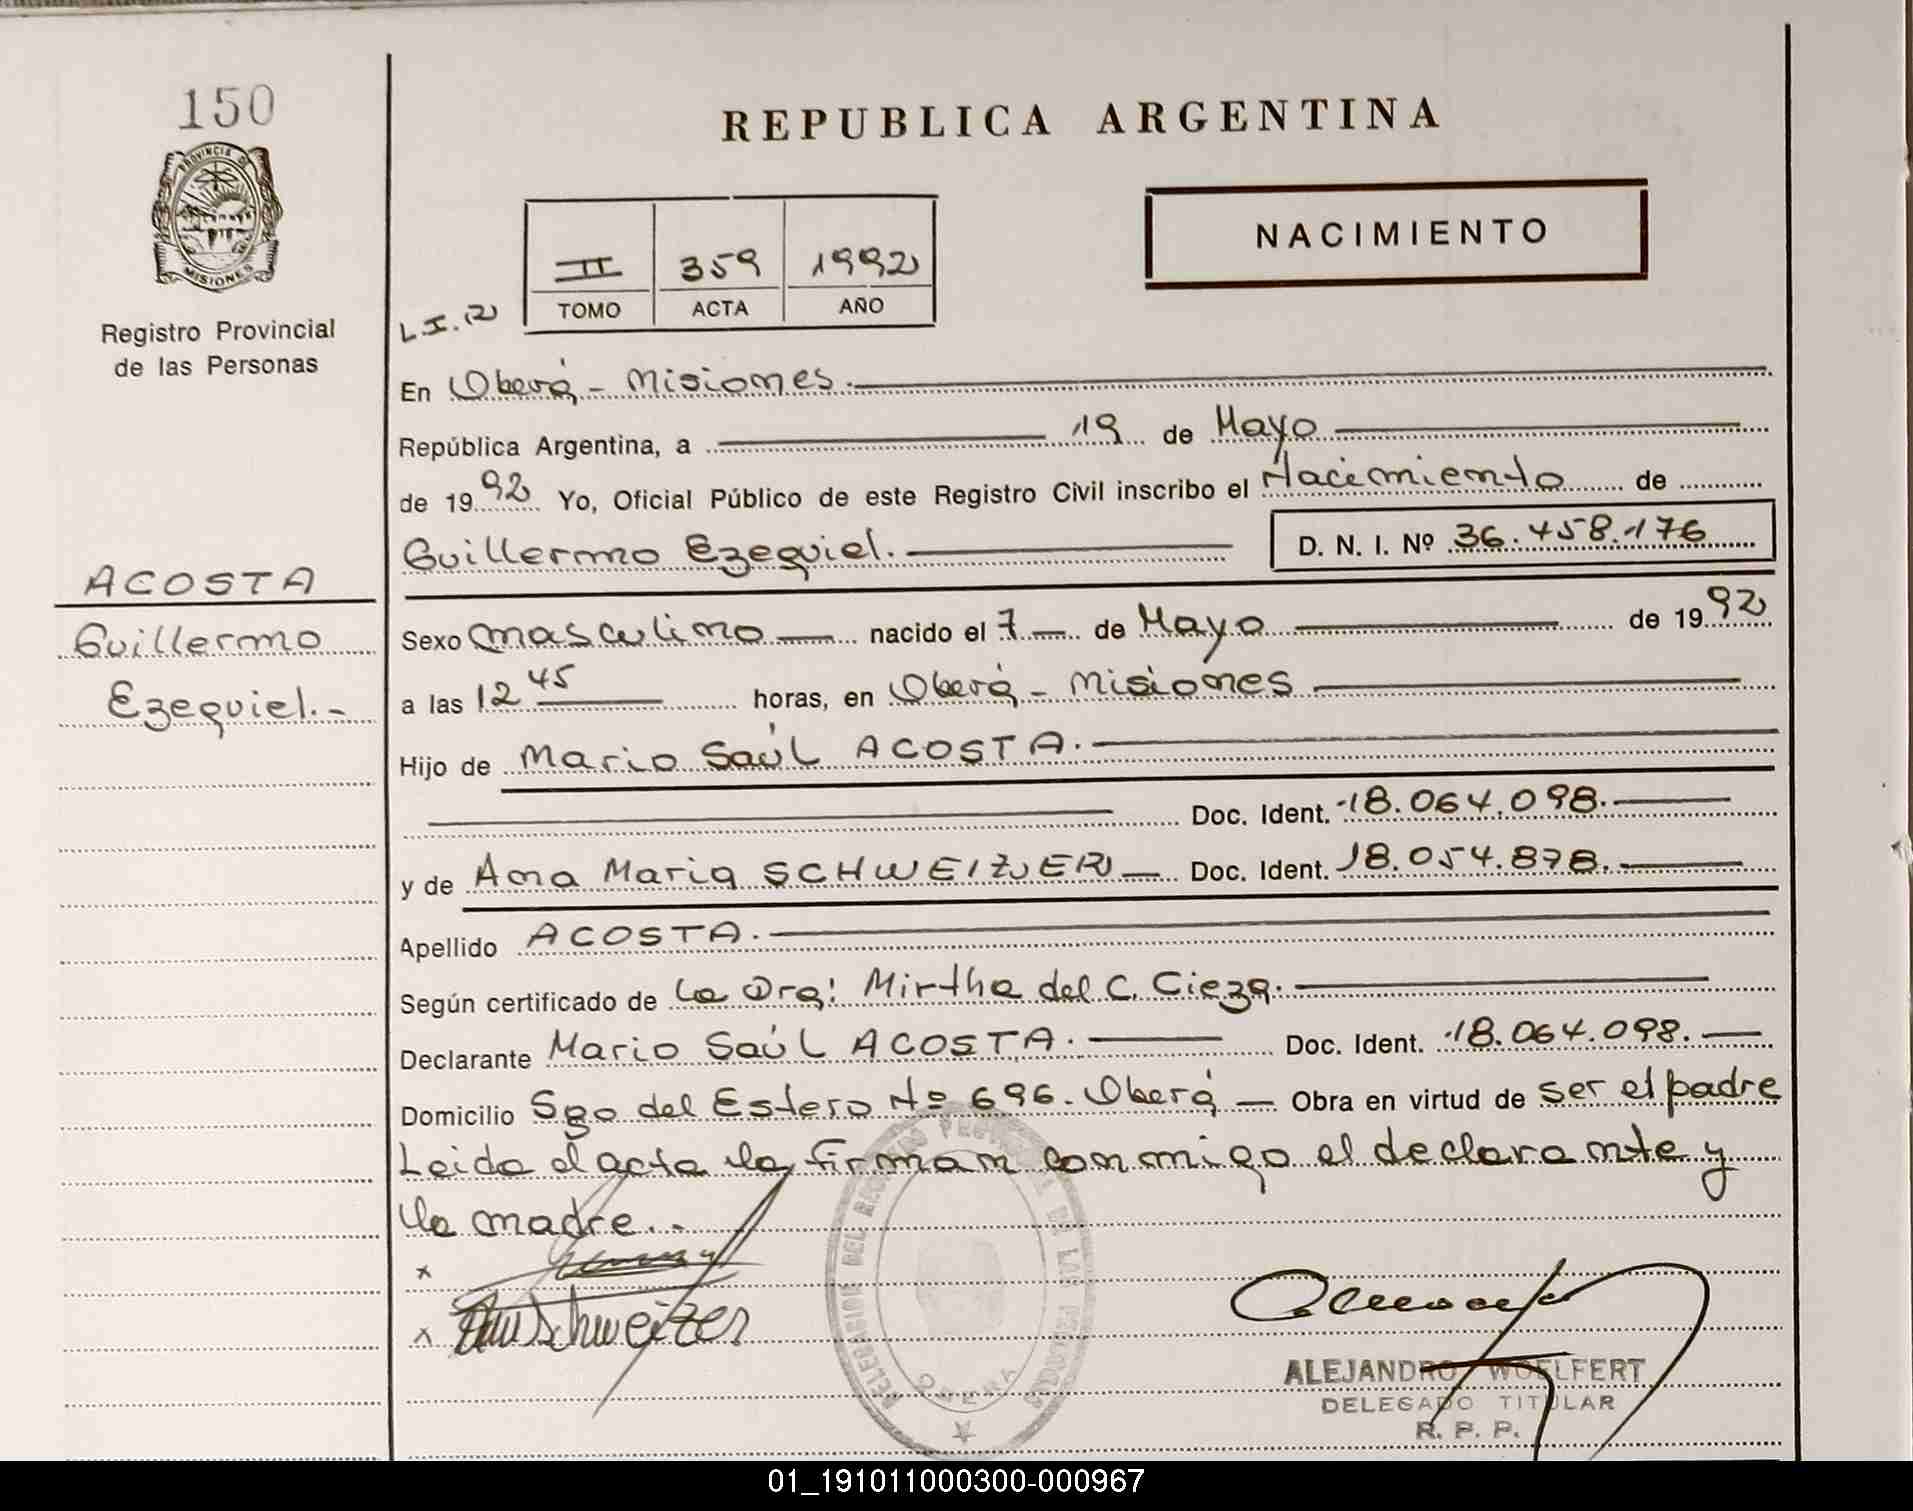 150
PROVINCIA DE
MISIONES
Registro Provincial
de las Personas
ACOSTA
Guillermo
Ezequiel.-
REPUBLICA ARGENTINA
NACIMIENTO
II 359 1992
TOMO ACTA AÑO
L.I.(2)
En Oberá - Misiones.
República Argentina, a 19 de Mayo
de 1992 Yo, Oficial Público de este Registro Civil inscribo el Nacimiento de
Guillermo Ezequiel. D. N. I. Nº 36.458.176
Sexo masculino nacido el 7 de Mayo de 1992
a las 12 45 horas, en Oberá - Misiones
Hijo de Mario Saúl ACOSTA.
Doc. Ident. 18.064.098.
y de Ana Maria SCHWEIZER Doc. Ident. 18.054.878.
Apellido ACOSTA.
Según certificado de la Dra: Mirtha del C. Cieza.
Declarante Mario Saúl ACOSTA. Doc. Ident. 18.064.098.
Domicilio Sgo del Estero Nº 696. Oberá - Obra en virtud de ser el padre
Leida el acta la firman conmigo el declarante y
la madre..-
x
x Schweizer
DELEGACION DEL REGISTRO PROVINCIAL DE LAS PERSONAS
OBERA
ALEJANDRO WOELFERT
DELEGADO TITULAR
R. P. P.
01_191011000300-000967